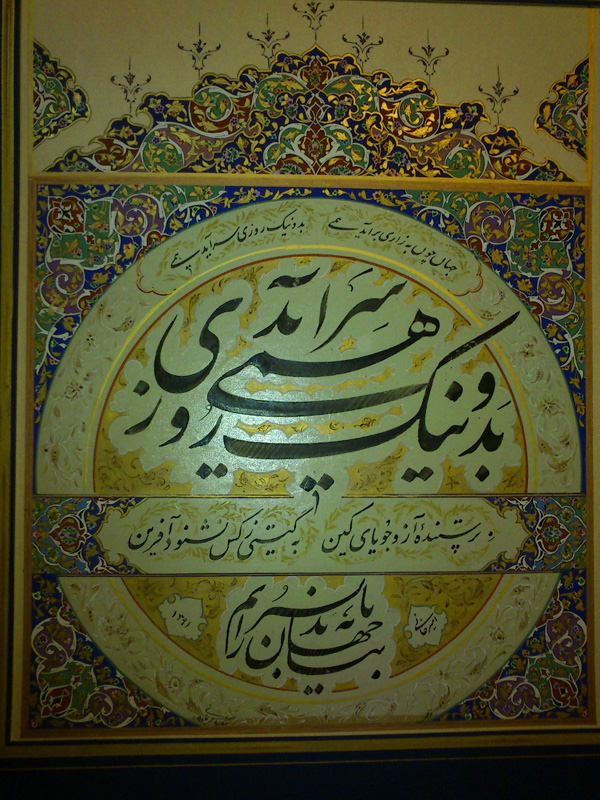 جهان چون به زاری برآید همی
بد و نیک روزی سرآید همی
بد و نیک روزی سرآید همی
پرستندهٔ آز و جویای کین
به گیتی ز کس نشنود آفرین
بیا تا جهان را به بد نسپریم